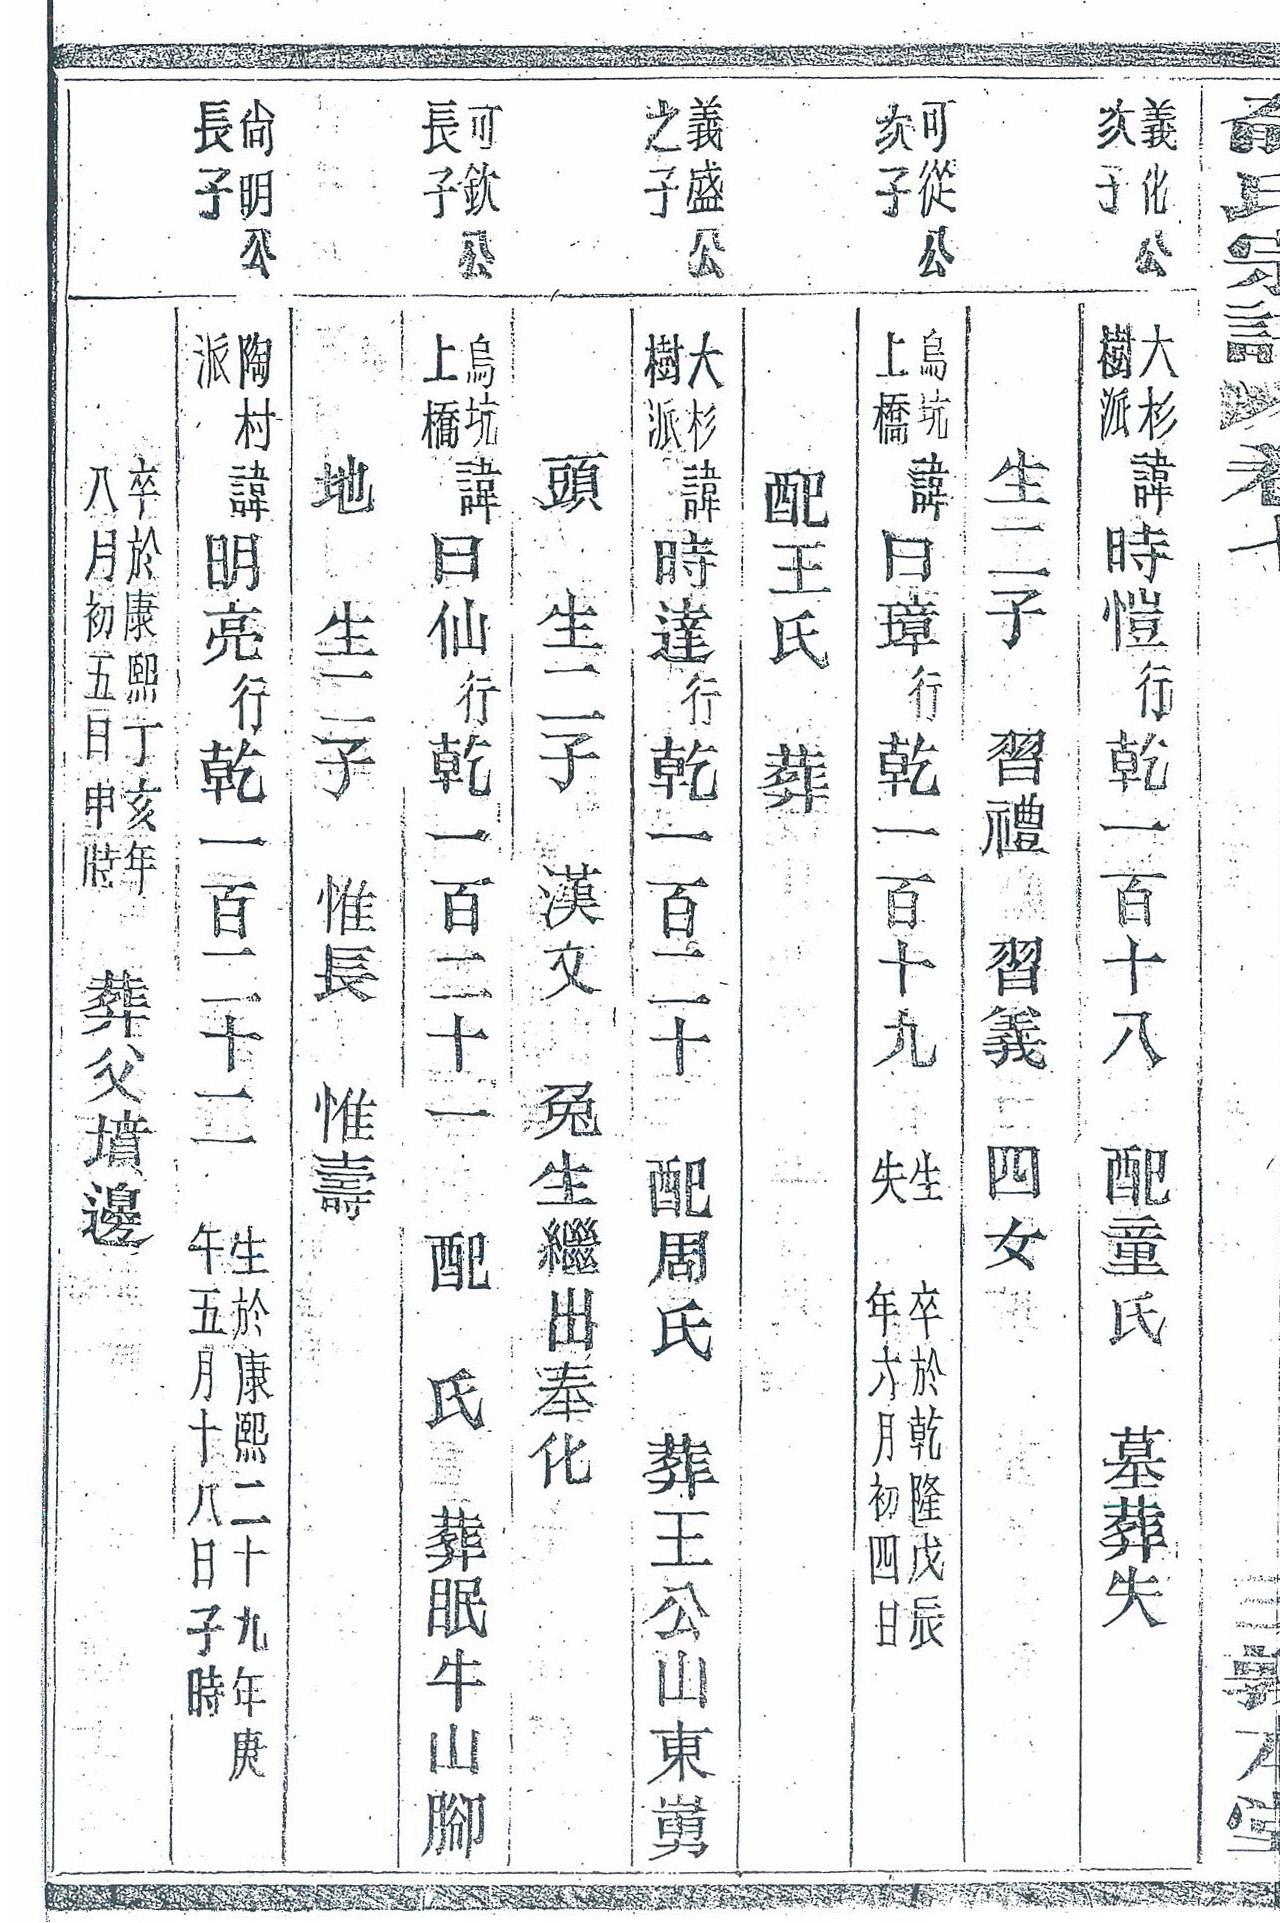 氏宗譜 卷十
三義本堂
義化公次子
大杉樹派 諱時愷行乾一百十八 配童氏 墓葬失
生二子 習禮 習義 四女
可從公次子
烏坑上橋 諱曰璋行乾一百十九 生失 卒於乾隆戊辰年六月初四日
配王氏 葬
義盛公之子
大杉樹派 諱時達行乾一百二十 配周氏 葬王公山東嶴
頭 生二子 漢文 兔生繼出奉化
可欽公長子
烏坑上橋 諱曰仙行乾一百二十一 配 氏 葬眠牛山腳
地 生二子 惟長 惟壽
尚明公長子
陶村派 諱明亮行乾一百二十二 生於康熙二十九年庚午五月十八日子時
卒於康熙丁亥年八月初五日申時 葬父墳邊